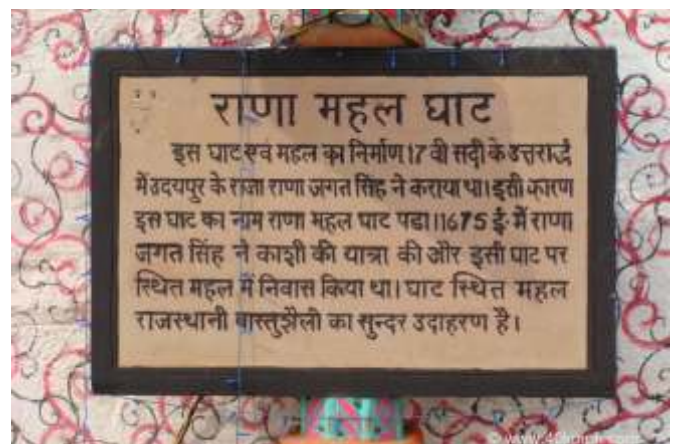 राणा महल घाट
इस घाट एवं महल का निर्माण 17 वी सदी के उत्तरार्द्ध
में उदयपुर के राजा राणा जगत सिंह ने कराया था। इसी कारण
इस घाट का नाम राणा महल घाट पडा। 1675 ई. में राणा
जगत सिंह ने काशी की यात्रा की और इसी घाट पर
स्थित महल में निवास किया था। घाट स्थित महल
राजस्थानी वास्तुशैली का सुन्दर उदाहरण है।